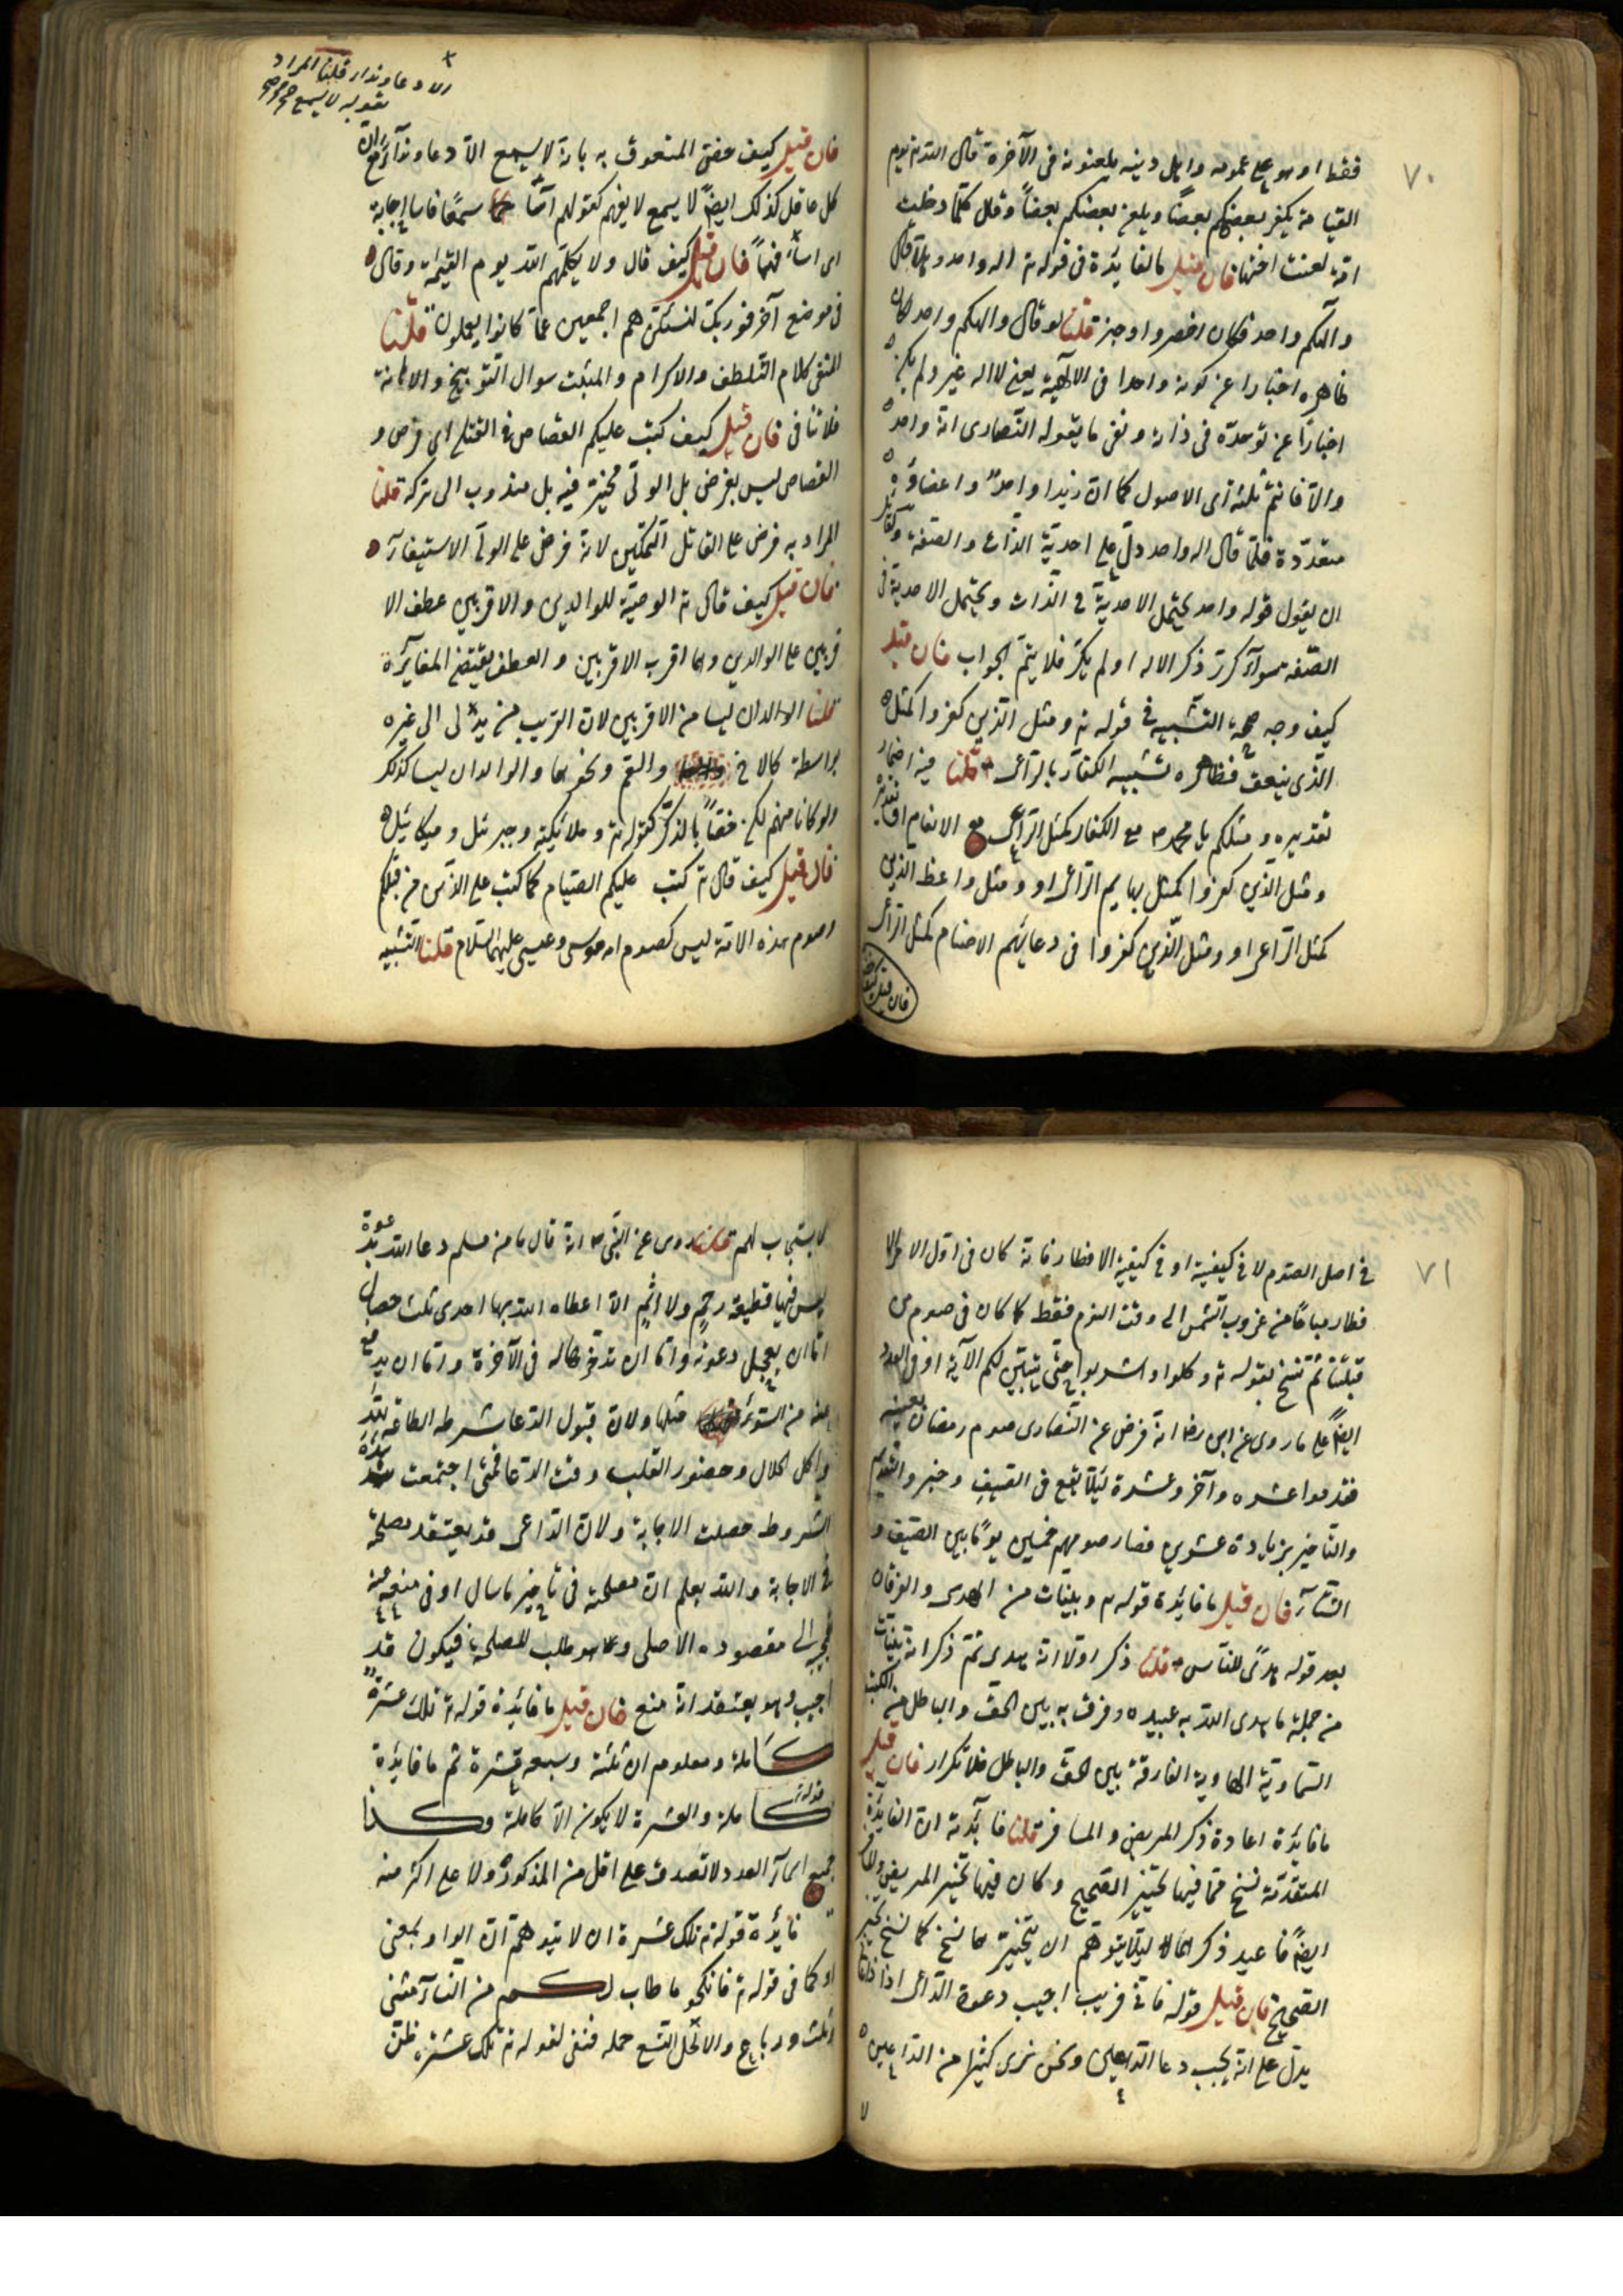 ٧٠
فقط او هو على عمومه واهل دينه يلعنونه فى الآخرة قال الله تع يوم
القيامة يكفر بعضكم بعضاً ويلعن بعضكم بعضاً وقال كلما دخلت
امة لعنت اختها فان قيل ما الفايدة فى قوله تع اله واحد وهلا قال
والهكم واحد فكان اخصر واوجز قلنا لو قال والهكم واحد لكان
ظاهره اخبارا عن كونه واحدا فى الالهية يعنى لا اله غيره ولم يكن
اخباراً عن توحده فى ذاته ونفى ما يقوله النصارى انه واحد
والآقانيم ثلثة اى الاصول كما ان زيدا واحد واعضاؤه
متعددة فلما قال اله واحد دل على احدية الذات والصفة ولقائل
ان يقول قوله واحد يحتمل الاحدية فى الذات ويحتمل الاحدية فى
الصفة سوآء كرر ذكر الاله او لم يكرر فلا يتم الجواب فان قيل
كيف وجه صحة التشبيه فى قوله تع ومثل الذين كفروا كمثل
الذى ينعق فظاهره تشبيه الكفار بالراعى قلنا فيه اضمار
تقديره ومثلكم يا محمد مع الكفار كمثل الراعى مع الانعام او تقديره
ومثل الذين كفروا كمثل بهايم الراعى او ومثل واعظ الذين
كمثل الراعى او ومثل الذين كفروا فى دعائهم الاصنام كمثل الراعى
فان قيل كيف
الا دعا وندا قلنا المراد
بقوله لا يسمع
فان قيل كيف خص المنعوق به بانه لا يسمع الا دعا وندآ مع ان
كل عاقل كذلك ايضاً لا يسمع لا يفهم كقولهم اسآ سمعًا فاسا اجابة
اى اسآ فهماً فان قيل كيف قال ولا يكلمهم الله يوم القيمة وقال
فى موضع آخر فوربك لنسئلنهم اجمعين عما كانوا يعملون قلنا
المنفى كلام التلطف والاكرام والمثبت سوال التوبيخ والاهانة
فلا تنافى فان قيل كيف كتب عليكم القصاص فى القتلى اى فرض و
القصاص ليس بفرض بل الولى مخير فيه بل مندوب الى تركه قلنا
المراد به فرض على القاتل التمكين لانه فرض على الولى الاستيفآء
فان قيل كيف قال تع الوصية للوالدين والاقربين عطف الا
قربين على الوالدين وهما اقرب الاقربين والعطف يقتضى المغايرة
قلنا الوالدان ليسا من الاقربين لان القريب من يدلى الى غيره
بواسطة كالاخ والعم ونحوهما والوالدان ليسا كذلك
ولو كانا منهم لكن خصاً بالذكر كقوله تع وملائكته وجبرئل وميكائيل
فان قيل كيف قال تع كتب عليكم الصيام كما كتب على الذين من قبلكم
وصوم هذه الامة ليس كصوم امة موسى وعيسى عليهما السلام قلنا التشبيه
٧١
فى اصل الصوم لا فى كيفيته او فى كيفية الافطار فانه كان فى اول الامر الا
فطار مباحًا من غروب الشمس الى وقت النوم فقط كما كان فى صوم من
قبلنا ثم نسخ بقوله تع وكلوا واشربوا حتى يتبين لكم الآية او فى العدد
ايضاً على ما روى عن ابن رضا انه فرض عن النصارى صوم رمضان بعينه
فقدموا عشره وآخر وعشرة ليلا يقع فى الصيف وجبر والتقديم
والتاخير بزيادة عشرين فصار صومهم خمسين يومًا بين الصيف و
الشتآء فان قيل ما فايدة قوله وبينات من الهدى والفرقان
بعد قوله هدًى للناس قلنا ذكر اولا انه هدى ثم ذكر انه بينات
من جملة ما هدى الله به عبيده وفرق به بين الحق والباطل من الكتب
السماوية الهادية الفارقة بين الحق والباطل فلا تكرار فان قيل
ما فايدة اعادة ذكر المريض والمسافر قلنا فآئدته ان الفايدة
المتقدمة نسخ مما فيها تخيير الصحيح وكان فيها تخيير المريض والمسافر
ايضاً فاعيد ذكرهما ليلا يتوهم ان تخييرهما نسخ كما نسخ تخيير
الصحيح فان قيل قوله فانى قريب اجيب دعوة الداعى اذا دعان
يدل على انه يجيب دعا الداعين ونحن نرى كثيرا من الداعين
لا يستجاب لهم قلنا روى عن النبى انه قال ما من مسلم دعا الله بدعوة
ليس فيها قطيعة رحم ولا اثم الا اعطاه الله بها احدى ثلث خصال
اما ان يعجل دعوته واما ان تدخر هاله فى الآخرة واما ان يدفع
عنه من السوء مثلها ولان قبول الدعا شرطه الطاعة لله
واكل الحلال وحضور القلب وقت الدعا فمتى اجتمعت هذه
الشروط حصلت الاجابة ولان الداعى قد يعتقد مصلحة
فى الاجابة والله يعلم ان مصلحته فى تاخير ما سال او فى منعه عنه
فيجيبه الى مقصوده الاصلى وهو طلب المصلحة فيكون قد
اجيب وهو يعتقد انه منع فان قيل ما فائدة قوله تع تلك عشرة
كاملة ومعلوم ان ثلثة وسبعة عشرة ثم ما فايدة
قوله كاملة والعشرة لا يكون الا كاملة وكذا
جميع اسمآء العدد لا تصدق على اقل من المذكور ولا على اكثر منه
فايدة قوله تع تلك عشرة ان لا يتوهم ان الواو بمعنى
او كما فى قوله تع فانكحو ما طاب لكم من النسآء مثنى
وثلث ورباع والا لحل التسع جملة فنفى لقوله تع تلك عشرة ظن